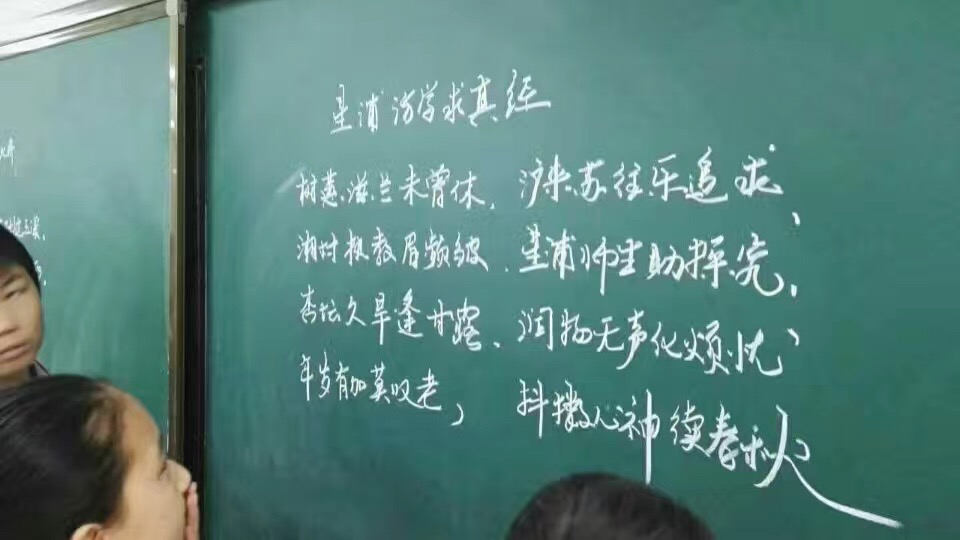 星浦访学求真经
树蕙滋兰未曾休，沙来苏往乐追求、
湘村执教眉频皱、星浦师生助探究，
杏坛久旱逢甘露、润物无声化烦忧、
年岁有加莫叹老，抖擞心神续春秋